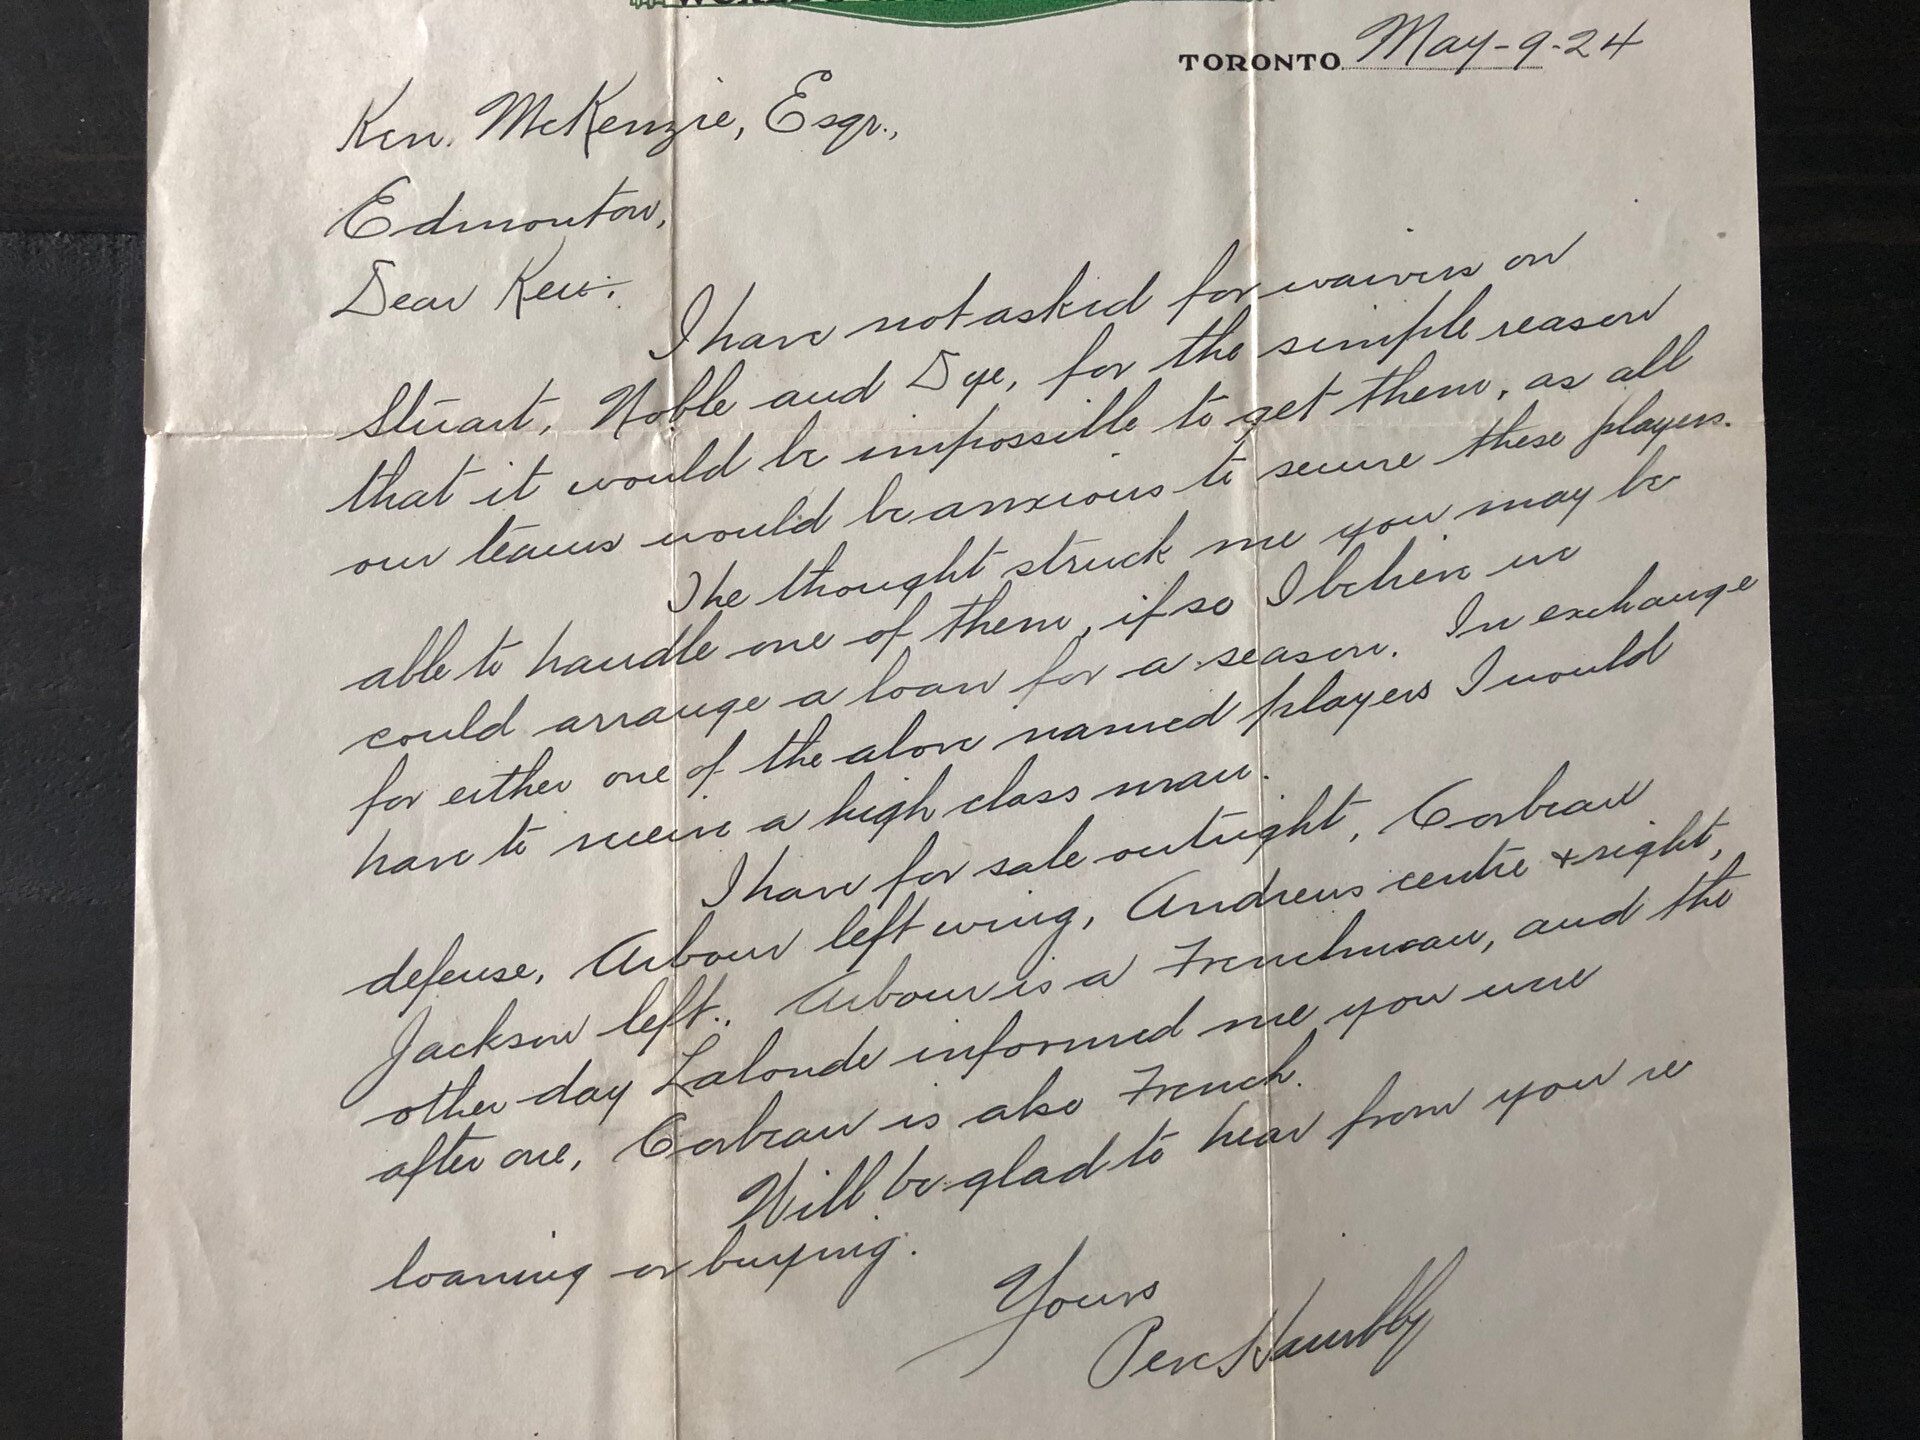 WORLD'S
TORONTO May-9-24
Ken. McKenzie, Esqr.,
Edmonton,
Dear Ken:
I have not asked for waivers on
Stuart, Noble and Dye, for the simple reason
that it would be impossible to get them, as all
our teams would be anxious to secure these players.
The thought struck me you may be
able to handle one of them, if so I believe we
could arrange a loan for a season. In exchange
for either one of the above named players I would
have to receive a high class man.
I have for sale outright, Corbeau
defense, Arbour left wing, Andrews centre & right,
Jackson left. Arbour is a Frenchman, and the
other day Lalonde informed me you were
after one, Corbeau is also French.
Will be glad to hear from you re
loaning or buying.
Yours
Perc Hambly